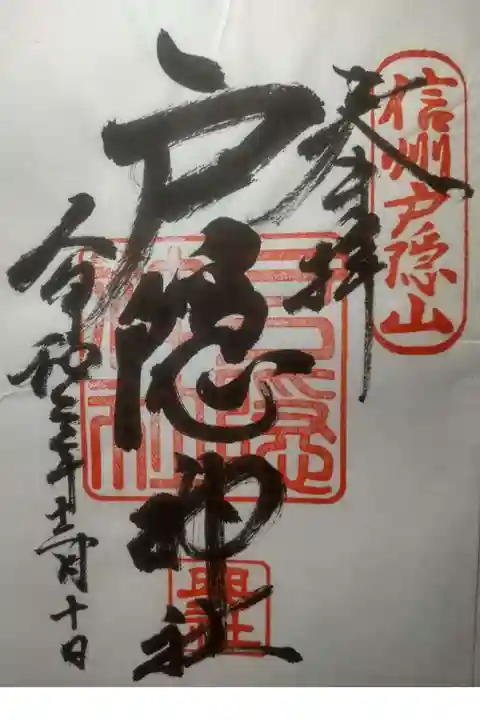 信州戸隠山
奉拝
戸隠神社
戸隠神社
令和六年十一月十日